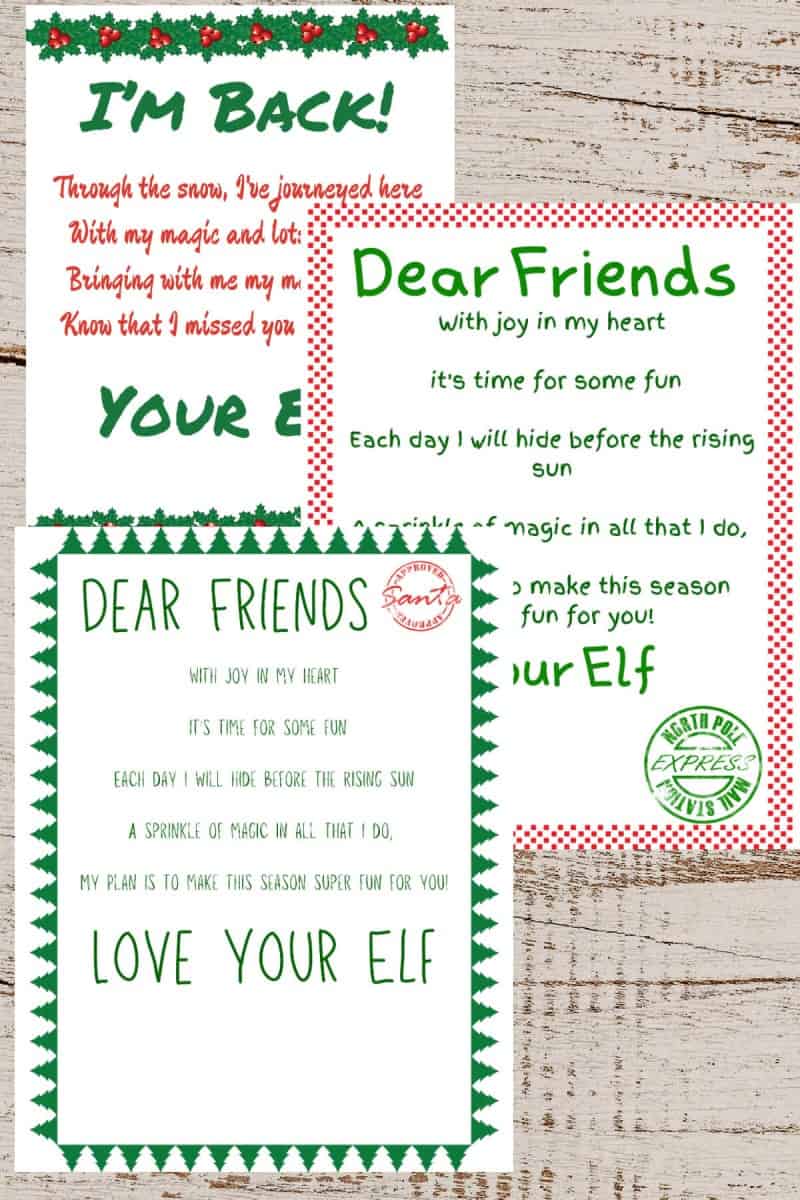 I'm Back!
Through the snow, I've journeyed here
With my magic and lots
Bringing with me my
Know that I missed you
Your
Dear Friends
With joy in my heart
it's time for some fun
Each day I will hide before the rising
sun
A sprinkle of magic in all that I do,
to make this season
fun for you!
our Elf
NORTH POLE
EXPRESS
MAIL STATION
DEAR FRIENDS
APPROVED
Santa
APPROVED
WITH JOY IN MY HEART
IT'S TIME FOR SOME FUN
EACH DAY I WILL HIDE BEFORE THE RISING SUN
A SPRINKLE OF MAGIC IN ALL THAT I DO,
MY PLAN IS TO MAKE THIS SEASON SUPER FUN FOR YOU!
LOVE YOUR ELF